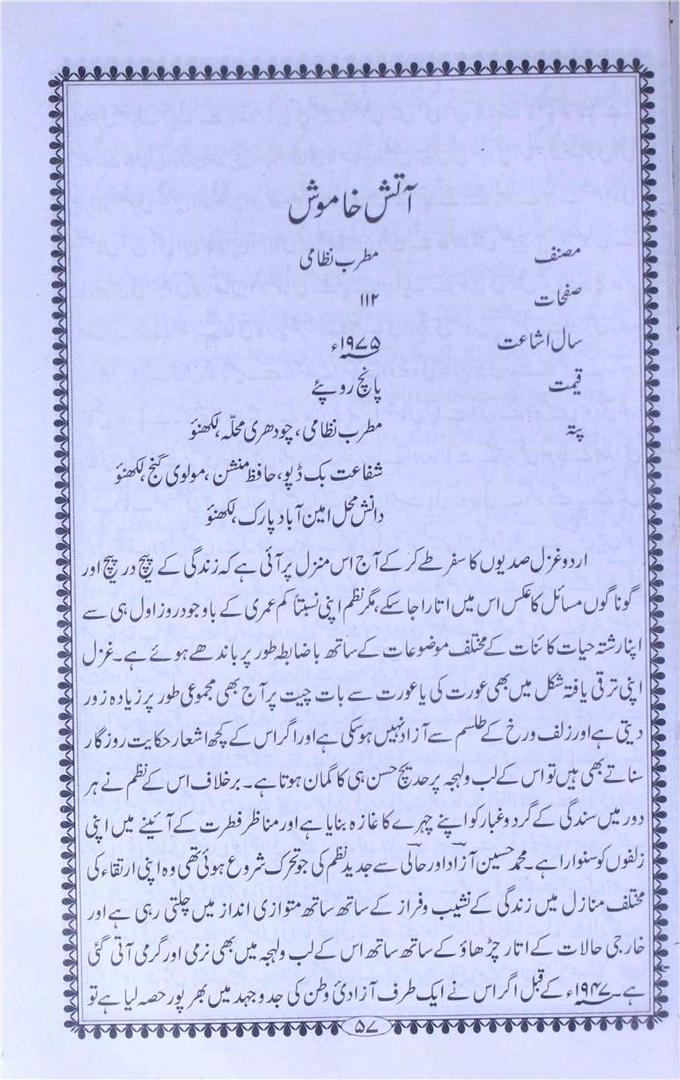 آتش خاموش
مصنف مطرب نظامی
صفحات ۱۱۲
سال اشاعت ۱۹۷۵ء
قیمت پانچ روپئے
پتہ مطرب نظامی، چودھری محلّہ، لکھنؤ
شفاعت بک ڈپو، حافظ منشن، مولوی گنج، لکھنؤ
دانش محل امین آباد پارک، لکھنؤ
اردو غزل صدیوں کا سفر طے کر کے آج اس منزل پر آئی ہے کہ زندگی کے پیچ در پیچ اور
گوناگوں مسائل کا عکس اس میں اتارا جا سکے، مگر نظم اپنی نسبتاً کم عمری کے باوجود روز اول ہی سے
اپنا رشتہ حیات کائنات کے مختلف موضوعات کے ساتھ باضابطہ طور پر باندھے ہوئے ہے۔ غزل
اپنی ترقی یافتہ شکل میں بھی عورت کی یا عورت سے بات چیت پر آج بھی مجموعی طور پر زیادہ زور
دیتی ہے اور زلف ورخ کے طلسم سے آزاد نہیں ہو سکی ہے اور اگر اس کے کچھ اشعار حکایت روزگار
سناتے بھی ہیں تو اس کے لب ولہجہ پر حدیچ حسن ہی کا گمان ہوتا ہے۔ برخلاف اس کے نظم نے ہر
دور میں سندگی کے گرد وغبار کو اپنے چہرے کا غازہ بنایا ہے اور مناظر فطرت کے آئینے میں اپنی
زلفوں کو سنوارا ہے۔ محمد حسین آزاد اور حالی سے جدید نظم کی جو تحرک شروع ہوئی تھی وہ اپنی ارتقاء کی
مختلف منازل میں زندگی کے نشیب وفراز کے ساتھ ساتھ متوازی انداز میں چلتی رہی ہے اور
خارجی حالات کے اتار چڑھاؤ کے ساتھ ساتھ اس کے لب ولہجہ میں بھی نرمی اور گرمی آتی گئی
ہے۔ ۱۹۴۷ء کے قبل اگر اس نے ایک طرف آزادئ وطن کی جدوجہد میں بھرپور حصہ لیا ہے تو
۵۷